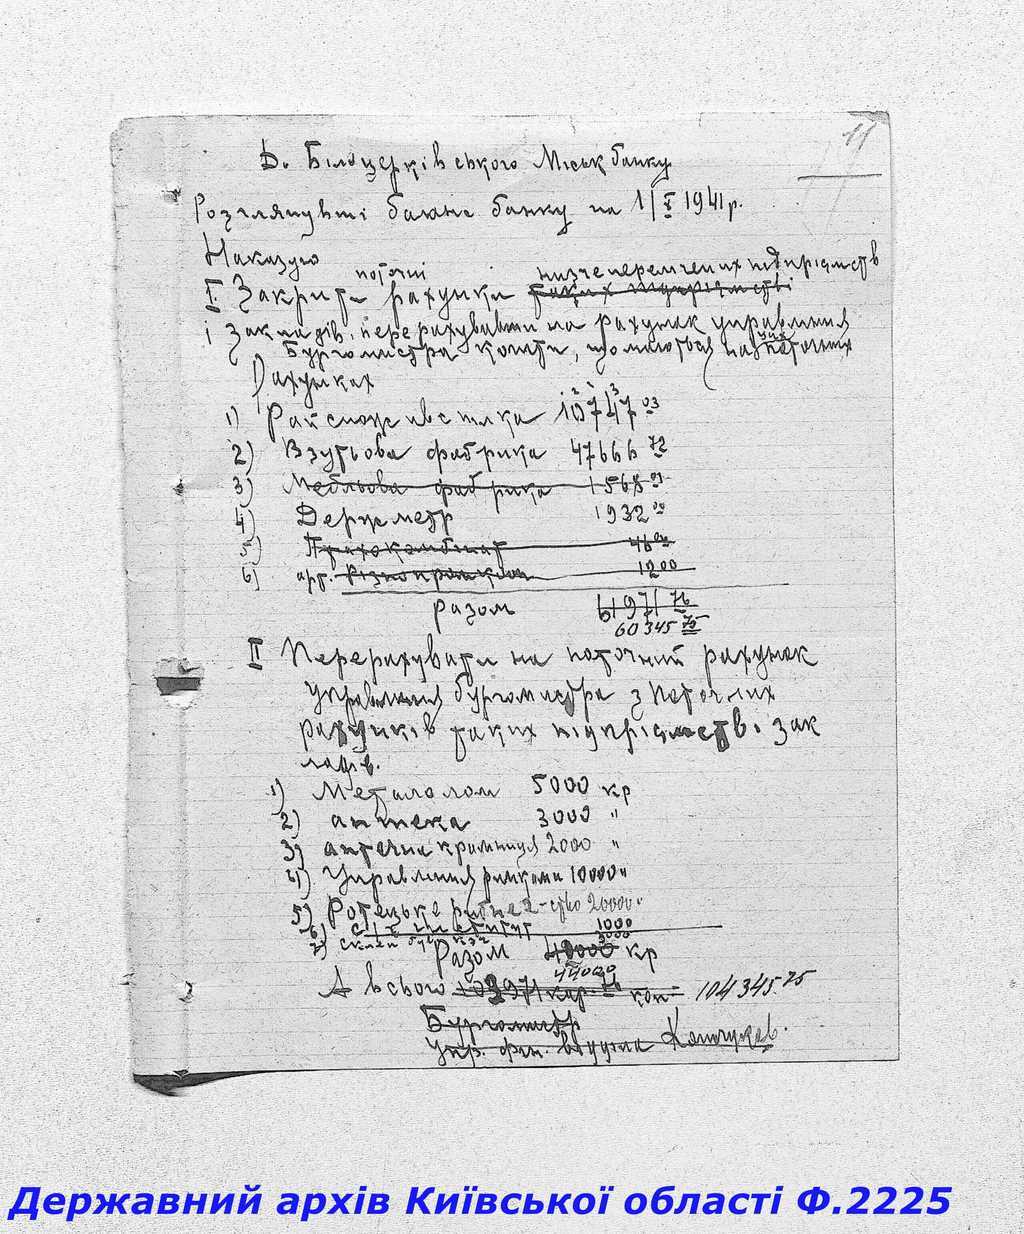 11
Б. Білоцерківського Міськбанку
Розглянувши баланс банку на 1/X 1941 р.
Наказую
поточні нижчеперелічених підприємств
I. Закрити рахунки таких підприємств
і закладів, перерахувавши на рахунок управління
Бургомистра кошти, що малоться на їх поточних
рахунках
1) Райспожившілка 10747 03
2) Взутьова фабрика 47666 72
3) Мебльова фабрика 1568 01
4) Держметр 1932 00
5) 46 00
6) арт. Різнопромсоюз 12 00
Разом 61971 76
60345 75
II Перерахувати на поточний рахунок
управління бургомистра з поточних
рахунків таких підприємств і зак
ладів.
1) Металолом 5000 кр
2) аптека 3000 "
3) аптечна крамниця 2000 "
4) Управління ринками 10000 "
5) Ротецьке 20000 "
6) с/г інститут 1000
7) 3000
Разом 40000 кр
44000
А всього 103971 кар. 76 коп 104345.75
Бургомистр
Упр. фін. відділа
Державний архів Київської області Ф.2225